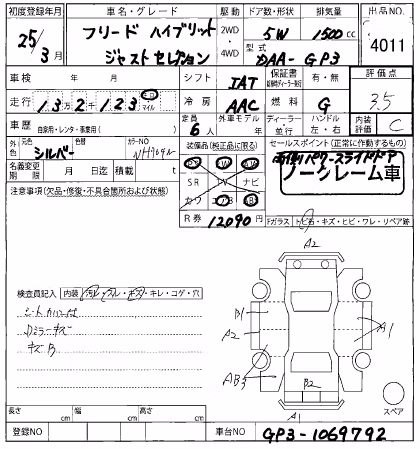 初度登録年月 車名・グレード 駆動 ドア数・形状 排気量 出品NO.
25年3月 フリード ハイブリット ジャストセレクション 2WD・4WD 5W 1500cc 4011
型式 DAA-GP3
車検 年 月 シフト IAT 保証書 有・無 評価点 3.5
走行 13万2千123 キロ マイル 冷房 AAC 燃料 G
車歴 自家用・レンタ・事業用( ) 定員 6人 外車モデル 年 ディーラー・並行 ハンドル 左・右 内装 C
外色 元色 シルバー 色替 カラーNO NH704M 装備品(純正品に限る) セールスポイント(正常に作動するもの)
両側パワースライドドア
名義変更期限 月 日迄 積載 t PS PW AW
SR TV ナビ ノークレーム車
カワ エアB ABS
注意事項(欠品・修復・不具合箇所および状態) R券 12090円
Fガラス トビ石・キズ・ヒビ・ワレ・リペア跡
A2
検査員記入 内装 汚レ・スレ・キズ・キレ・コゲ・穴
シートカバー付
Dミラーキズ
キズB
B1
A2
A1
AB3
B2
A1
スペア
長さ cm 幅 cm 高さ cm
登録NO 車台NO GP3-1069792